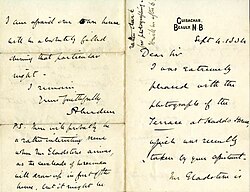 GUISACHAN,
BEAULY N B
Sept 4. 1884
Dear Sir
I was extremely
pleased with the
photograph of the
Terrace at Haddo House
which was recently
taken by your assistant
Mr Gladstone is
I am afraid our own house
will be absolutely filled
during that particular
night -
I remain
Yours faithfully
Aberdeen
P.S. There will probably be
a rather interesting scene
when Mr Gladstone arrives
as the hundreds of horsemen
will draw up in front of the
house, but it might be
rather late
for photographing